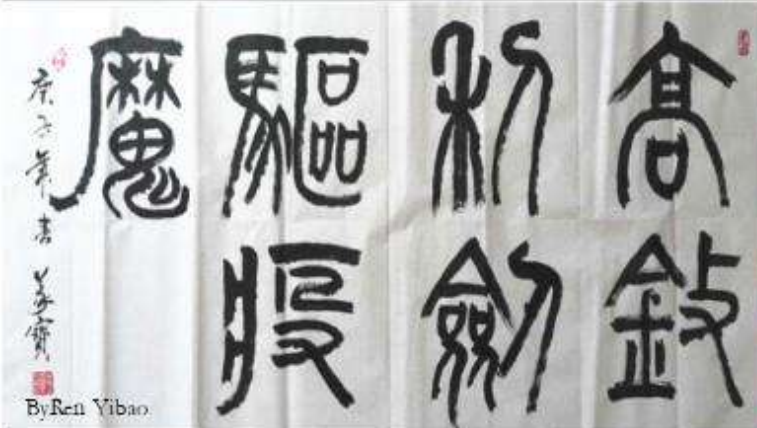 高
利劍
驅疫
魔
庚子年書 義寶
ByRen Yibao